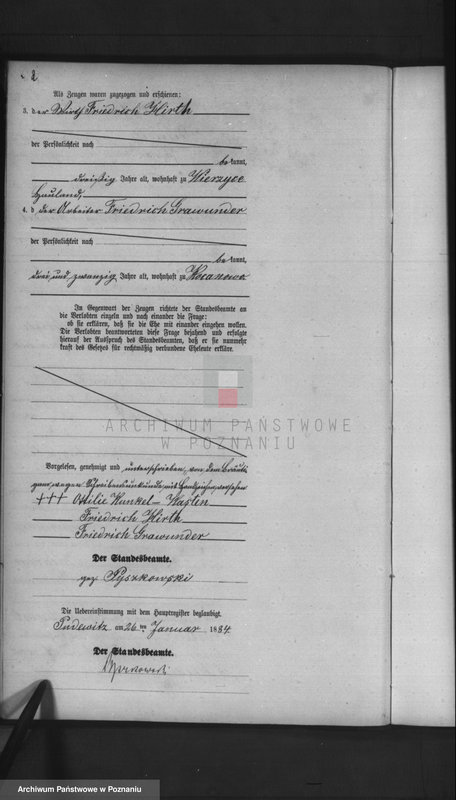 2
Als Zeugen waren zugezogen und erschienen:
3. der Wirth Friedrich Hirth
der Persönlichkeit nach
be kannt,
dreißig Jahre alt, wohnhaft zu Wierzyce
Hauland,
4. der Arbeiter Friedrich Grawunder
der Persönlichkeit nach
be kannt,
drei und zwanzig Jahre alt, wohnhaft zu Kocanowo
In Gegenwart der Zeugen richtete der Standesbeamte an
die Verlobten einzeln und nach einander die Frage:
ob sie erklären, daß sie die Ehe mit einander eingehen wollen.
Die Verlobten beantworteten diese Frage bejahend und erfolgte
hierauf der Ausspruch des Standesbeamten, daß er sie nunmehr
kraft des Gesetzes für rechtmäßig verbundene Eheleute erkläre.
ARCHIWUM PAŃSTWOWE
W POZNANIU
Vorgelesen, genehmigt und unterschrieben, von dem Bräuti-
gam wegen Schreibensunkunde mit Handzeichen versehen
+++ Ottilie Kunkel
Friedrich Hirth
Friedrich Grawunder
Der Standesbeamte.
gez. Pyszkowski
Die Uebereinstimmung mit dem Hauptregister beglaubigt.
Pudewitz am 26 ten Januar 1884.
Der Standesbeamte.
Archiwum Państwowe w Poznaniu